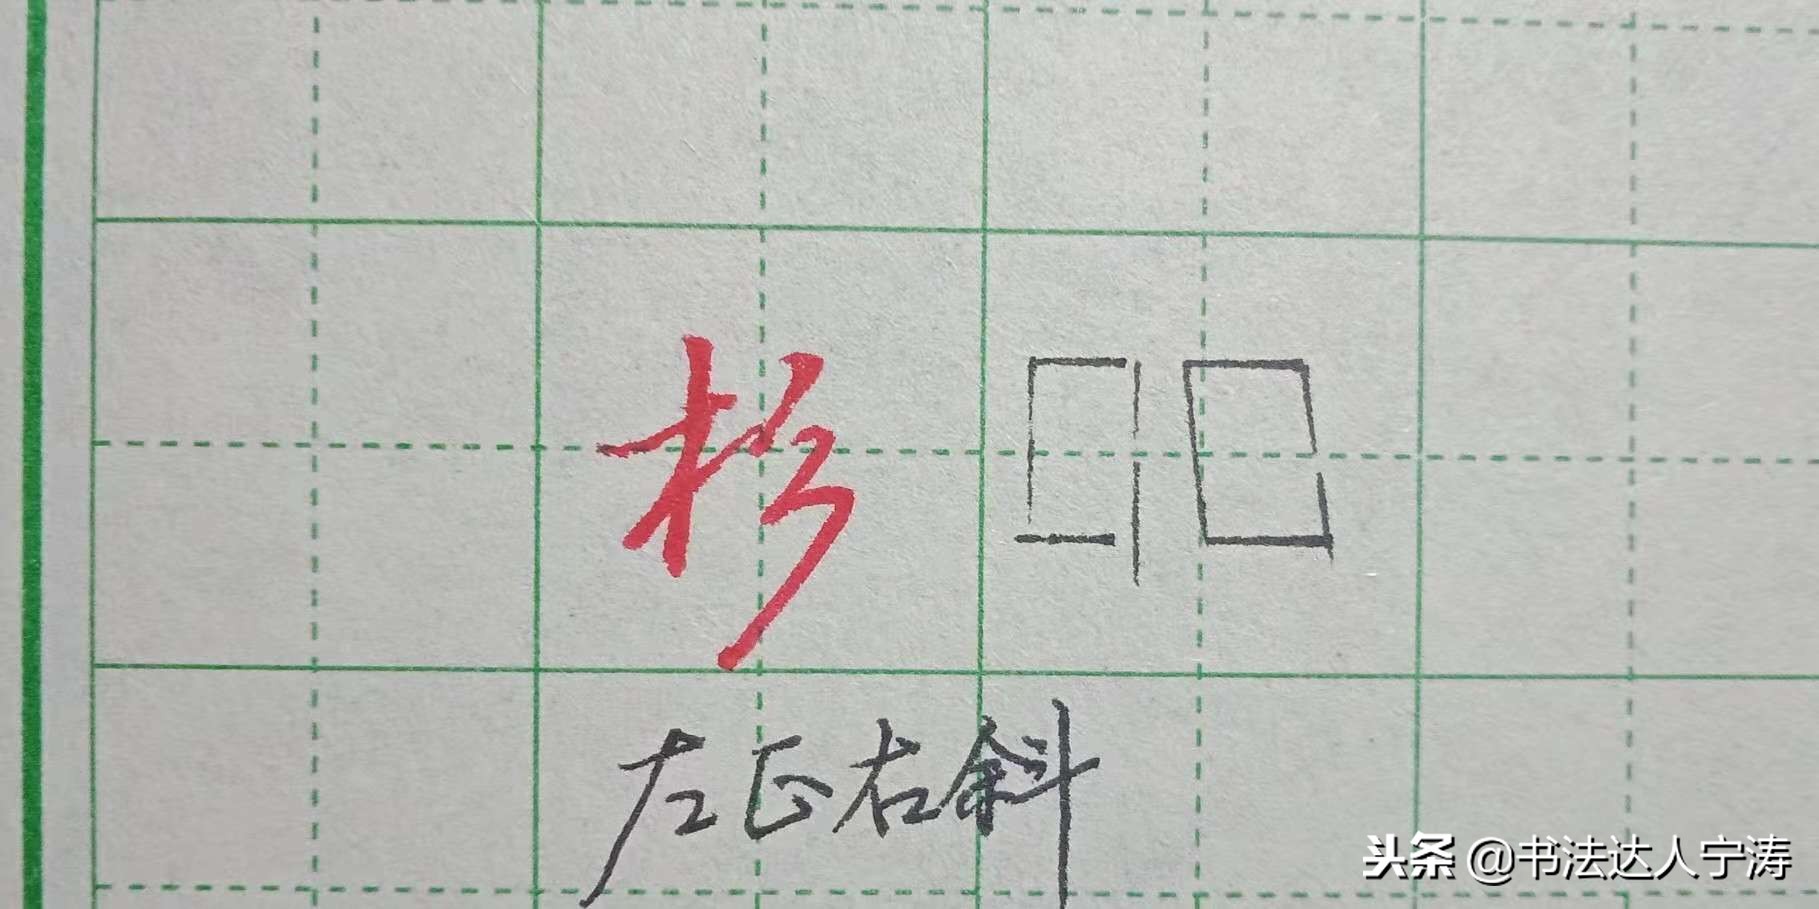 杉
左正右斜
头条 @书法达人宁涛